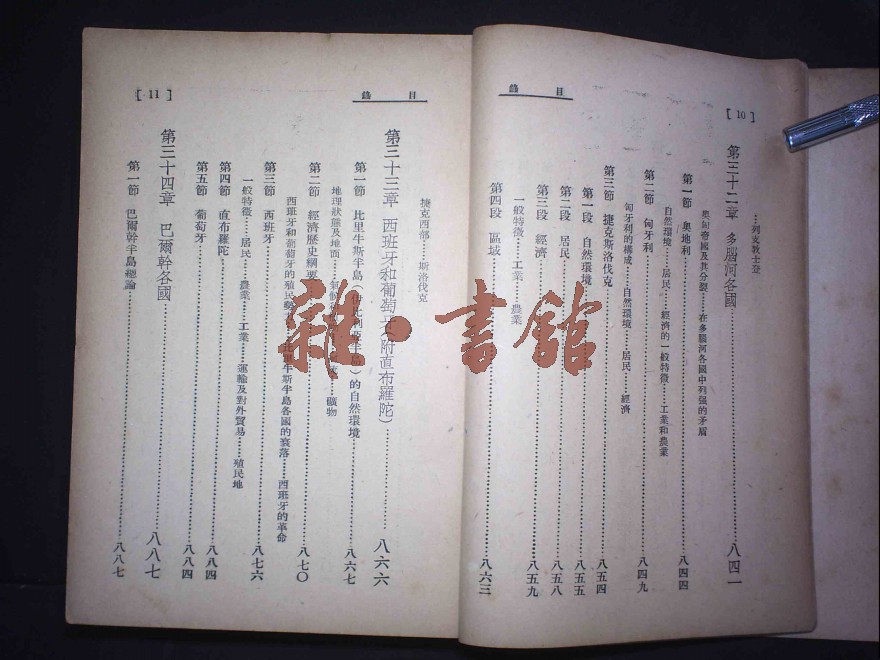 [ 10 ]
目錄
…列支敦士登
第三十二章 多腦河各國……八四一
奧匈帝國及其分裂……在多腦河各國中列强的矛盾
第一節 奧地利……八四四
自然環境……居民……經濟的一般特徵……工業和農業
第二節 匈牙利……八四九
匈牙利的構成……自然環境……居民……經濟
第三節 捷克斯洛伐克……八五四
第一段 自然環境……八五五
第二段 居民……八五八
第三段 經濟……八五九
一般特徵……工業……農業
第四段 區域……八六三
目錄
[ 11 ]
捷克西部……斯洛伐克
第三十三章 西班牙和葡萄牙(附直布羅陀)……八六六
第一節 比里牛斯半島(伊比利亞半島)的自然環境……八六七
地理狀態及地面……氣候……礦物
第二節 經濟歷史綱要……八七〇
西班牙和葡萄牙的殖民……比里牛斯半島各國的衰落……西班牙的革命
第三節 西班牙……八七六
一般特徵……居民……農業……工業……運輸及對外貿易……殖民地
第四節 直布羅陀……八八四
第五節 葡萄牙……八八四
第三十四章 巴爾幹各國……八八七
第一節 巴爾幹半島總論……八八七
雜·書館